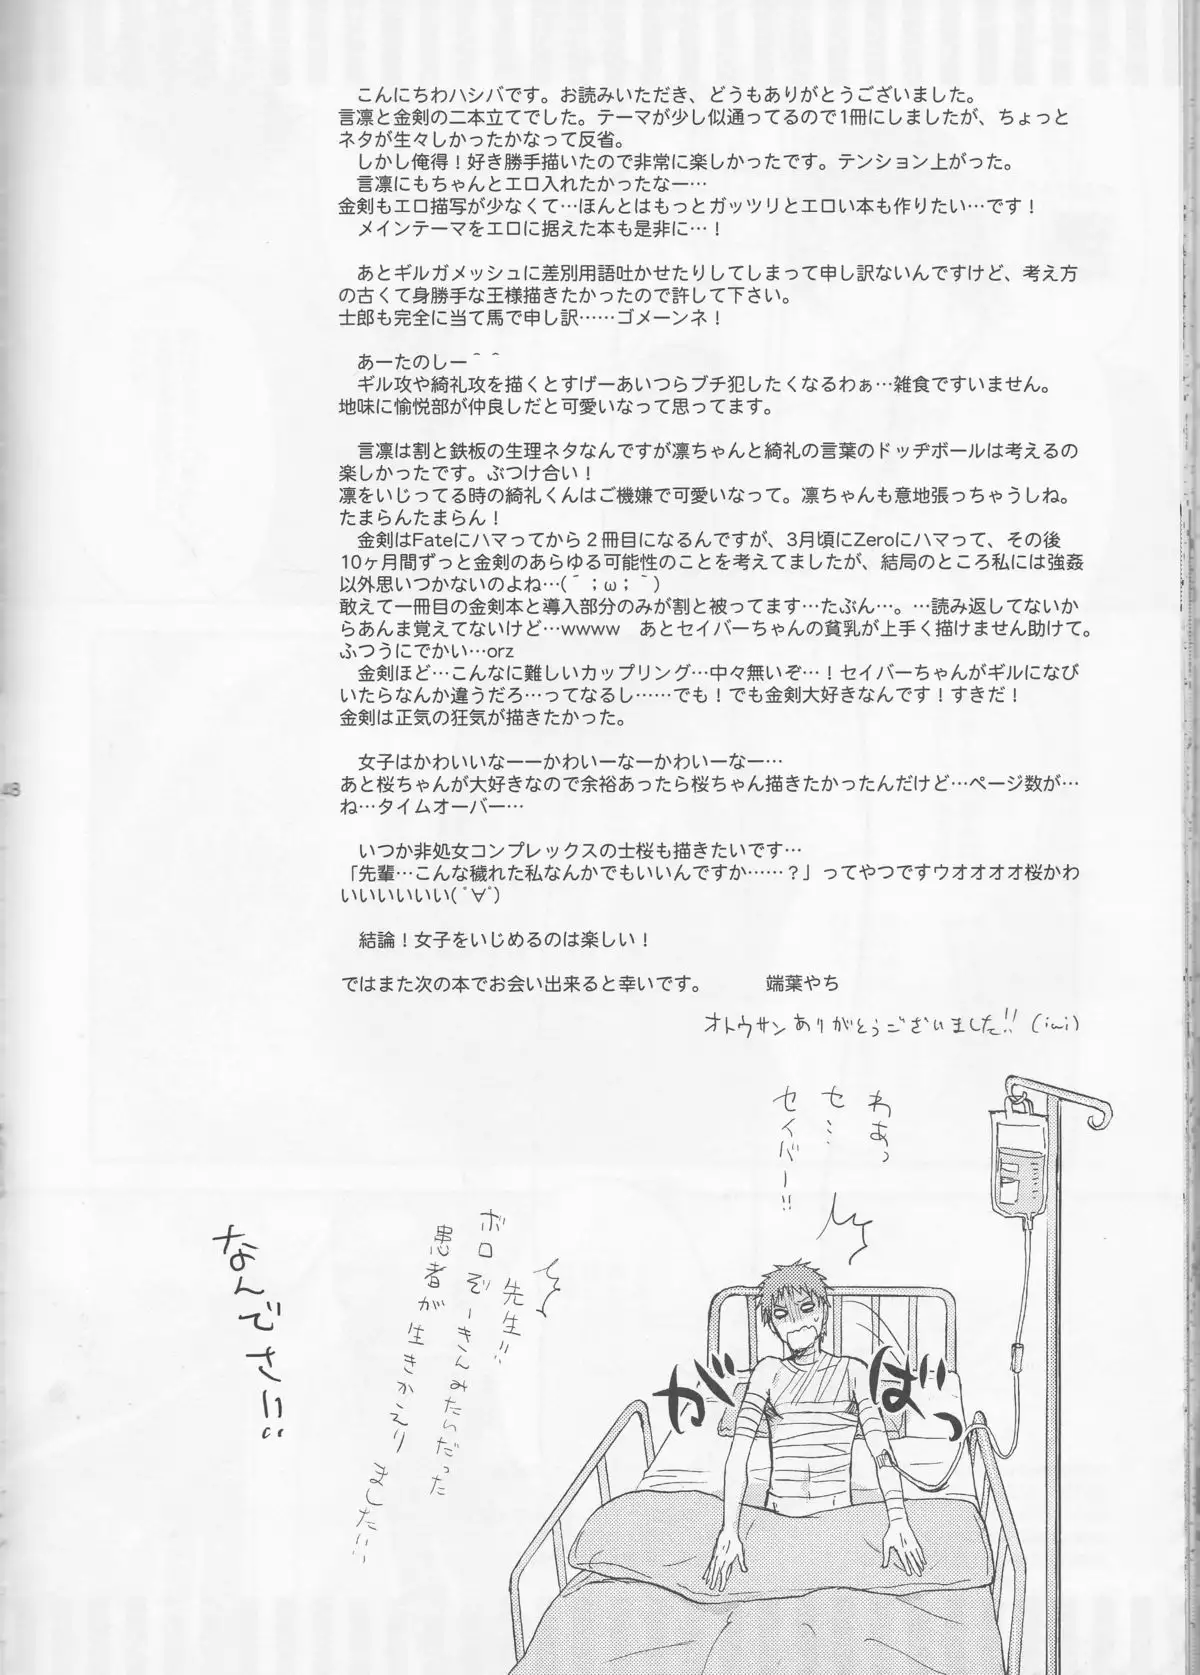 こんにちわハシバです。お読みいただき、どうもありがとうございました。
言凛と金剣の二本立てでした。テーマが少し似通ってるので1冊にしましたが、ちょっと
ネタが生々しかったかなって反省。
しかし俺得！好き勝手描いたので非常に楽しかったです。テンション上がった。
言凛にもちゃんとエロ入れたかったなー…
金剣もエロ描写が少なくて…ほんとはもっとガッツリとエロい本も作りたい…です！
メインテーマをエロに据えた本も是非に…！
あとギルガメッシュに差別用語吐かせたりしてしまって申し訳ないんですけど、考え方
の古くて身勝手な王様描きたかったので許して下さい。
士郎も完全に当て馬で申し訳……ゴメーンネ！
あーたのしー＾＾
ギル攻や綺礼攻を描くとすげーあいつらブチ犯したくなるわぁ…雑食ですいません。
地味に愉悦部が仲良しだと可愛いなって思ってます。
言凛は割と鉄板の生理ネタなんですが凛ちゃんと綺礼の言葉のドッヂボールは考えるの
楽しかったです。ぶつけ合い！
凛をいじってる時の綺礼くんはご機嫌で可愛いなって。凛ちゃんも意地張っちゃうしね。
たまらんたまらん！
金剣はFateにハマってから２冊目になるんですが、3月頃にZeroにハマって、その後
10ヶ月間ずっと金剣のあらゆる可能性のことを考えてましたが、結局のところ私には強姦
以外思いつかないのよね…(´；ω；｀)
敢えて一冊目の金剣本と導入部分のみが割と被ってます…たぶん…。…読み返してないか
らあんま覚えてないけど…wwww　あとセイバーちゃんの貧乳が上手く描けません助けて。
ふつうにでかい…orz
金剣ほど…こんなに難しいカップリング…中々無いぞ…！セイバーちゃんがギルになび
いたらなんか違うだろ…ってなるし……でも！でも金剣大好きなんです！すきだ！
金剣は正気の狂気が描きたかった。
女子はかわいいなーーかわいーなーかわいーなー…
あと桜ちゃんが大好きなので余裕あったら桜ちゃん描きたかったんだけど…ページ数が…
ね…タイムオーバー…
いつか非処女コンプレックスの士桜も描きたいです…
「先輩…こんな穢れた私なんかでもいいんですか……？」ってやつですウオオオオ桜かわ
いいいいいい(ﾟ∀ﾟ)
結論！女子をいじめるのは楽しい！
ではまた次の本でお会い出来ると幸いです。　　　端葉やち
オトウサンありがとうございました!! (iωi)
わあっ
セ…
セイバー!!
がばっ
先生!!
ボロぞーきんみたいだった
患者が生きかえりました!!!
なんでさ!!